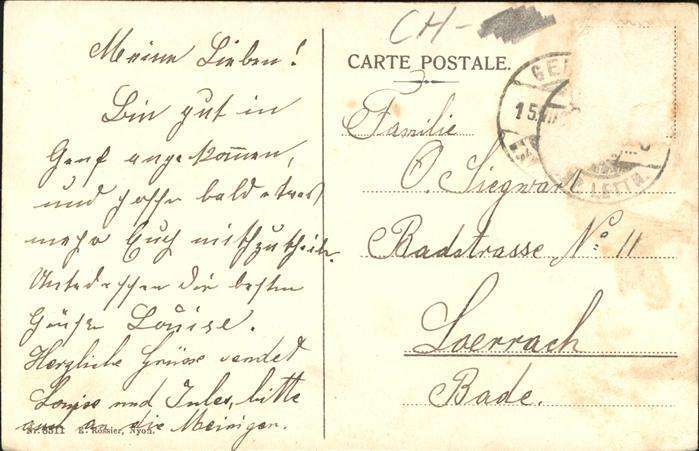 Meine Lieben!
Bin gut in
Genf angekommen,
und hoffe bald etwas
mehr Euch mitzutheilen.
Unterdessen die besten
Grüsse Louise.
Herzliche Grüsse sendet
Louise und Jules, bitte
auch an die Meinigen.
Nr. 3311 E. Rossier, Nyon.
CH-
CARTE POSTALE.
Familie
O. Siegwart
Badstrasse No. 11
Loerrach
Bade.
GE
15.
LETTR